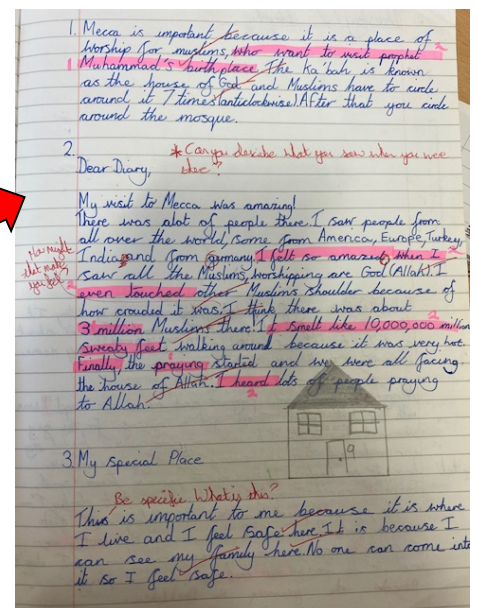 1. Mecca is important because it is a place of
worship for muslims, who want to visit prophet 2
1 Muhammad's birthplace. The Ka'bah is known
as the house of God and Muslims have to circle
around it 7 times (anticlockwise). After that you circle
around the mosque.
2.
* Can you describe what you saw when you were there?
Dear Diary,
My visit to Mecca was amazing!
There was alot of people there. I saw people from
all over the world, some from America, Europe, Turkey,
India, and from Germany. I felt so amazed when I 2
How might that make you feel?
saw all the Muslims, worshipping are God (Allah). I
2 even touched other Muslims shoulder because of
how crouded it was. I think there was about
3 million Muslims there! It smelt like 10,000,000 million
sweaty feet walking around because it was very hot.
Finally, the praying started and we were all facing
the house of Allah. I heard lots of people praying
2
to Allah.
9
3. My Special Place
Be specific What is this?
This is important to me because it is where
I live and I feel safe here. It is because I
can see my family here. No one can come into
it so I feel safe.